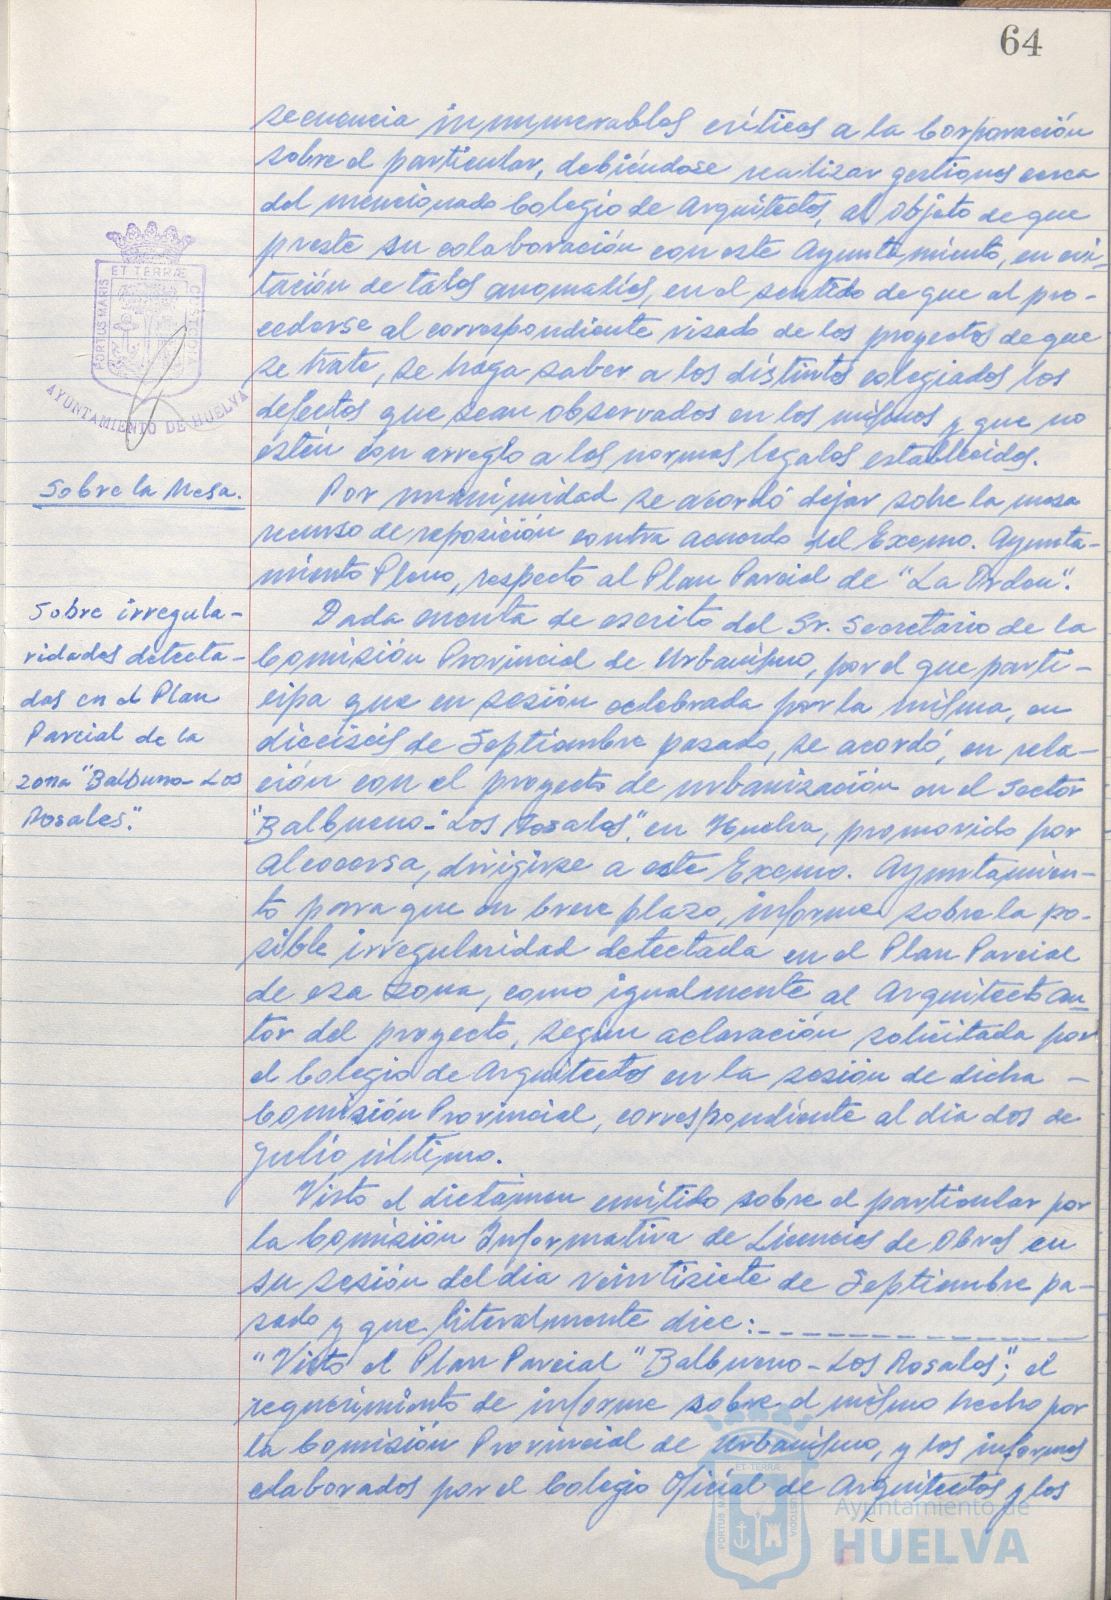 64
secuencia innumerables críticas a la Corporación
sobre el particular, debiéndose realizar gestiones cerca
del mencionado Colegio de Arquitectos, al objeto de que
preste su colaboración con este Ayuntamiento, en evi-
tación de tales anomalías, en el sentido de que al pro-
cederse al correspondiente visado de los proyectos de que
se trate, se haga saber a los distintos colegiados los
defectos que sean observados en los mismos y que no
estén con arreglo a las normas legales establecidas.
ET TERRÆ
PORTUS MARIS
CUSTODIA
AYUNTAMIENTO DE HUELVA
Sobre la Mesa.
Por unanimidad se acordó dejar sobre la mesa
recurso de reposición contra acuerdo del Excmo. Ayunta-
miento Pleno, respecto al Plan Parcial de "La Orden".
Sobre irregula-
ridades detecta-
das en el Plan
Parcial de la
zona "Balbueno-Los
Rosales".
Dada cuenta de escrito del Sr. Secretario de la
Comisión Provincial de Urbanismo, por el que parti-
cipa que en sesión celebrada por la misma, en
dieciseis de Septiembre pasado, se acordó, en rela-
ción con el proyecto de urbanización en el Sector
"Balbueno-"Los Rosales", en Huelva, promovido por
Alcocersa, dirigirse a este Excmo. Ayuntamien-
to para que en breve plazo, informe sobre la po-
sible irregularidad detectada en el Plan Parcial
de esa zona, como igualmente al Arquitecto au
tor del proyecto, segun aclaración solicitada por
el Colegio de Arquitectos en la sesión de dicha -
Comisión Provincial, correspondiente al dia dos de
Julio último.
Visto el dictamen emitido sobre el particular por
la Comisión Informativa de Licencias de Obras en
su sesión del dia veintisiete de Septiembre pa-
sado y que literalmente dice:
"Visto el Plan Parcial "Balbueno-Los Rosales"; el
requerimiento de informe sobre el mismo hecho por
la Comisión Provincial de Urbanismo, y los informes
elaborados por el Colegio Oficial de Arquitectos y los
ET TERRÆ
PORTUS MARIS
CUSTODIA
Ayuntamiento de
HUELVA